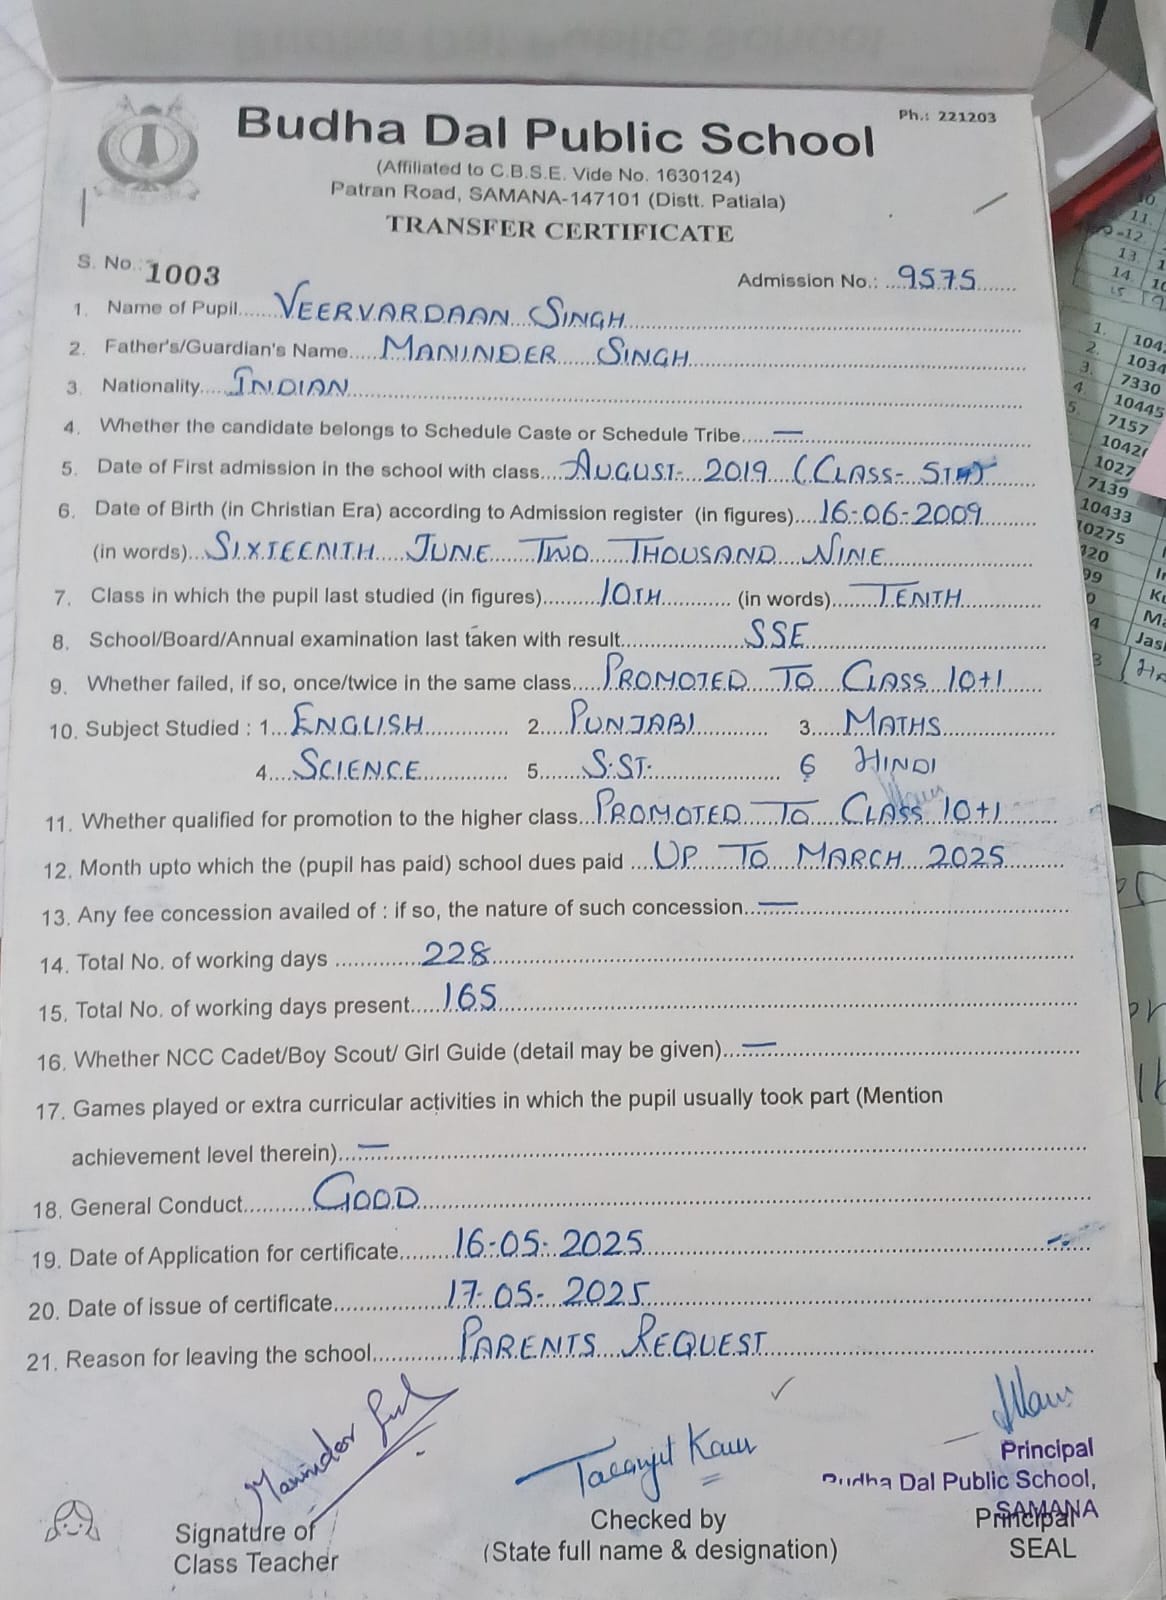 Budha Dal Public School
Ph.: 221203
(Affiliated to C.B.S.E. Vide No. 1630124)
Patran Road, SAMANA-147101 (Distt. Patiala)
TRANSFER CERTIFICATE
S. No.: 1003
Admission No.: 9575
1. Name of Pupil VEERVARDAAN SINGH
2. Father's/Guardian's Name MANINDER SINGH
3. Nationality INDIAN
4. Whether the candidate belongs to Schedule Caste or Schedule Tribe —
5. Date of First admission in the school with class AUGUST- 2019 (CLASS- 5TH)
6. Date of Birth (in Christian Era) according to Admission register (in figures) 16-06-2009
(in words) SIXTEENTH JUNE TWO THOUSAND NINE
7. Class in which the pupil last studied (in figures) 10TH (in words) TENTH
8. School/Board/Annual examination last taken with result SSE
9. Whether failed, if so, once/twice in the same class PROMOTED TO CLASS 10+1
10. Subject Studied : 1. ENGLISH 2. PUNJABI 3. MATHS
4. SCIENCE 5. S.ST. 6 HINDI
11. Whether qualified for promotion to the higher class PROMOTED TO CLASS 10+1
12. Month upto which the (pupil has paid) school dues paid UP TO MARCH 2025
13. Any fee concession availed of : if so, the nature of such concession —
14. Total No. of working days 228
15. Total No. of working days present 165
16. Whether NCC Cadet/Boy Scout/ Girl Guide (detail may be given) —
17. Games played or extra curricular activities in which the pupil usually took part (Mention
achievement level therein) —
18. General Conduct GOOD
19. Date of Application for certificate 16-05-2025
20. Date of issue of certificate 17-05-2025
21. Reason for leaving the school PARENTS REQUEST
Maninder
Taranjit Kaur
Principal
Budha Dal Public School,
SAMANA
Signature of
Class Teacher
Checked by
(State full name & designation)
Principal
SEAL
10.
11.
-12
13
14
15
1.
2. 1034
3. 7330
4. 10445
5. 7157
1027
7139
10433
10275